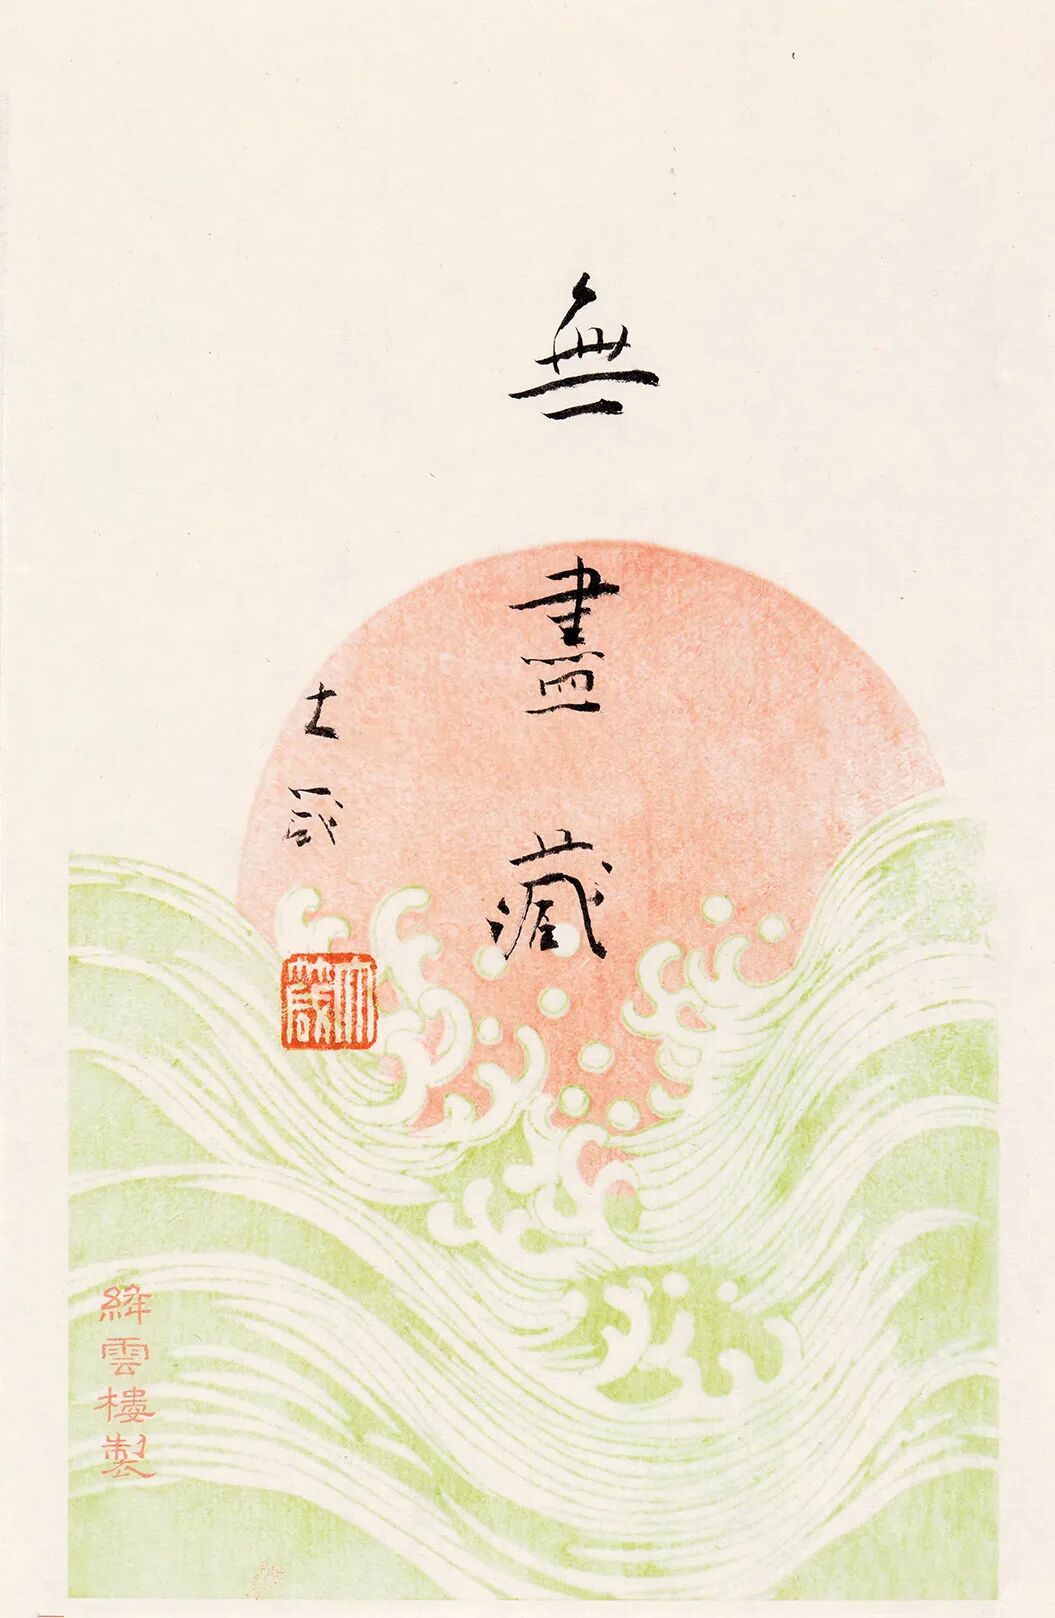 無盡藏
士
絳雲樓製